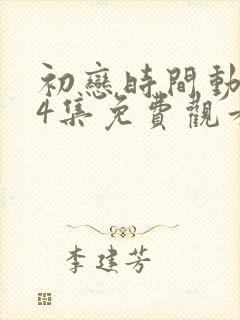 初戀時間動
4集免費觀看
李建芳